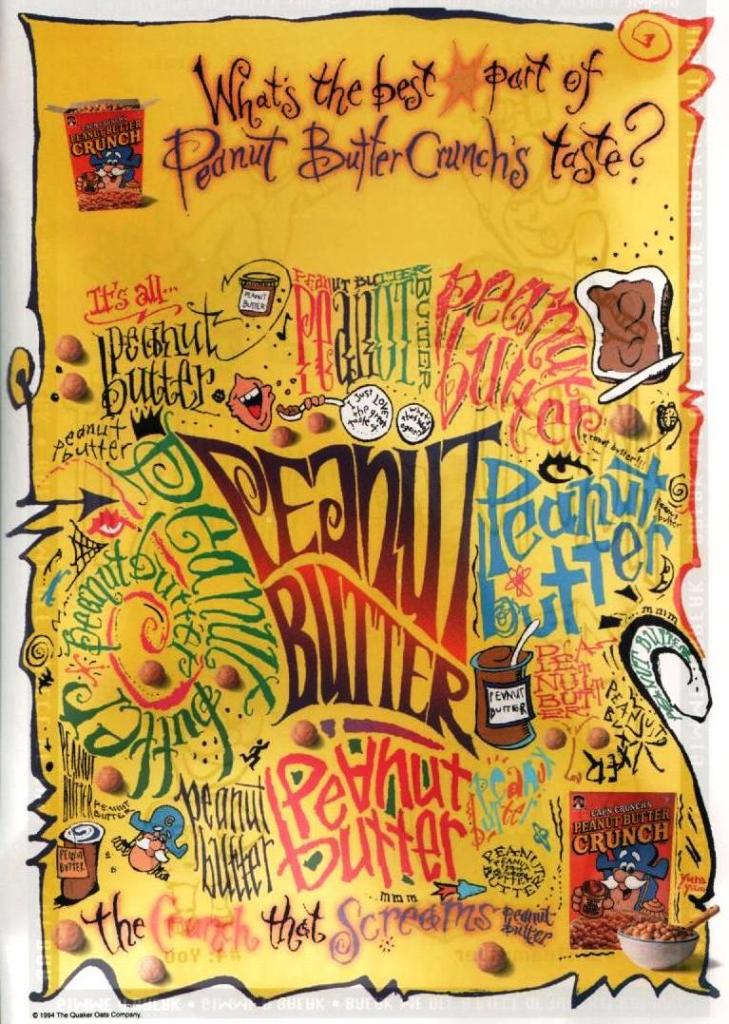 What's the best part of
Peanut Butter Crunch's taste?
CAP'N CRUNCH'S
PEANUT BUTTER
CRUNCH
It's all...
Peanut
butter
PEANUT
BUTTER
PEANUT BUTTER
PEANUT
BUTTER
Peanut
butter
just
LOVE
the great
taste of
peanut
butter
peanut butter!!!
Peanut
butter
peanut
butter
PEANUT
BUTTER
Peanut
butter
peanut
butter
mmm
PEANUT BUTTER
PEANUT
BUTTER
PEA
NUT
BUTT
ER
PEANUT
BUTTER
Peanut
butter
peanut
butter
Peanut
butter
PEANUT
BUTTER
PEANUT
BUTTER
PEANUT
BUTTER
mmm
CAP'N CRUNCH'S
PEANUT BUTTER
CRUNCH
Yum
the Crunch that Screams peanut
butter
© 1994 The Quaker Oats Company.